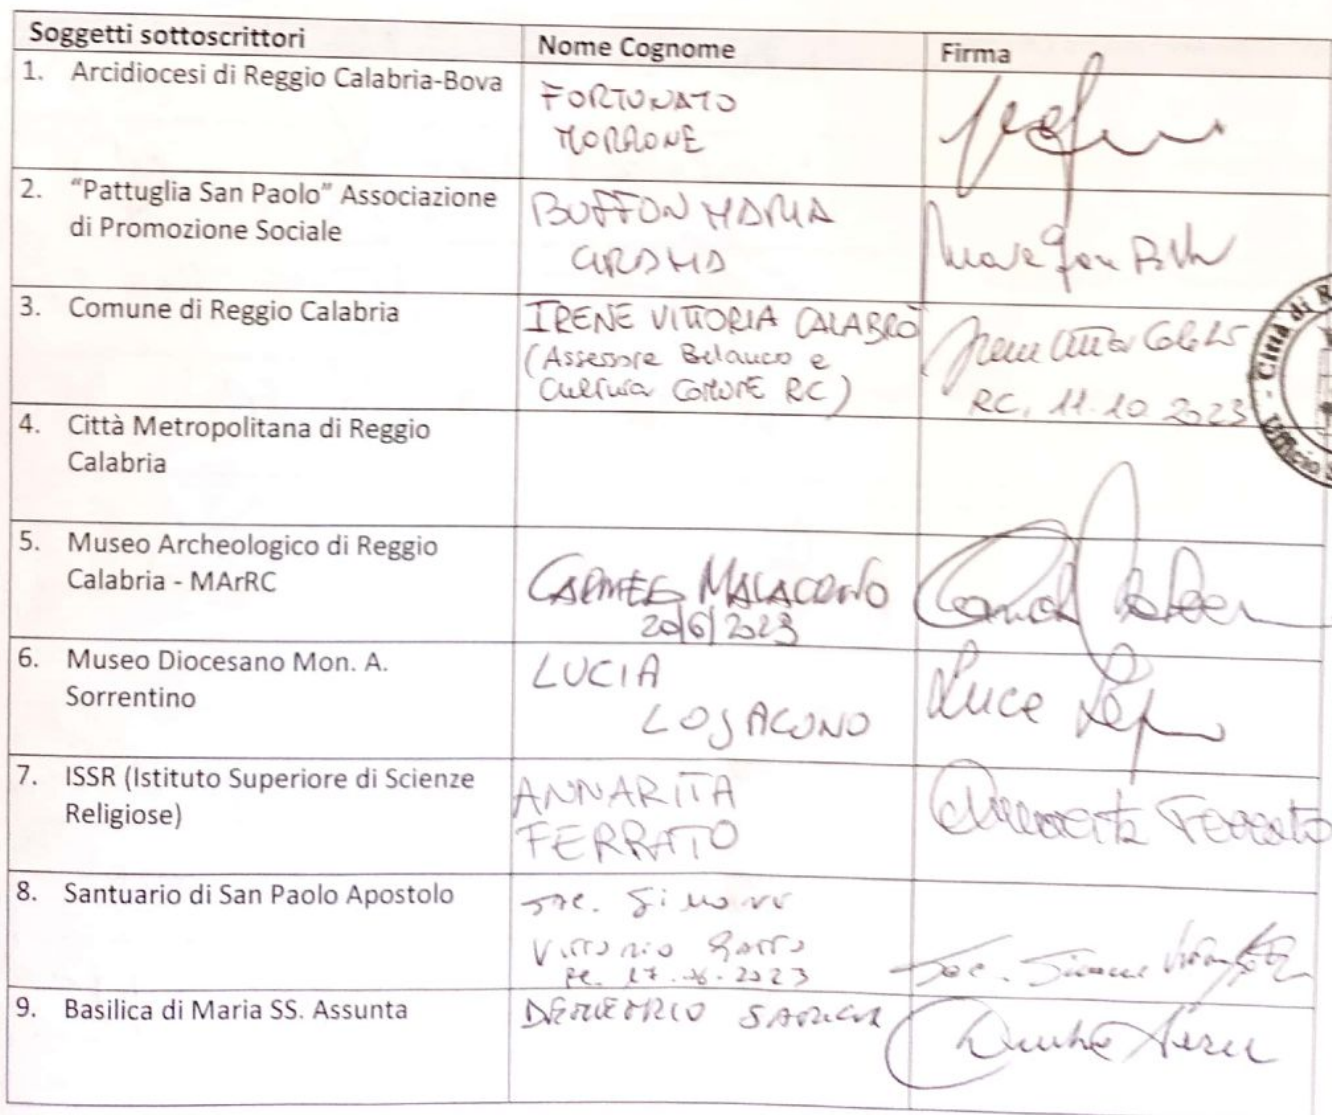 Soggetti sottoscrittori Nome Cognome Firma
1. Arcidiocesi di Reggio Calabria-Bova
FORTUNATO
MORRONE
2. "Pattuglia San Paolo" Associazione
di Promozione Sociale
BUFFON MARIA
GRAMA
3. Comune di Reggio Calabria
IRENE VITTORIA CALABRÒ
(Assessore Bilancio e
Cultura COMUNE RC)
RC, 11.10.2023
Città di R
Ufficio S
4. Città Metropolitana di Reggio
Calabria
5. Museo Archeologico di Reggio
Calabria - MArRC
CARMELO MALACRINO
20/6/2023
6. Museo Diocesano Mon. A.
Sorrentino
LUCIA
LOJACONO
7. ISSR (Istituto Superiore di Scienze
Religiose)
ANNARITA
FERRATO
Annarita Ferrato
8. Santuario di San Paolo Apostolo
Sac. Simone
Vittorio Gatto
RC. 17.06.2023
Sac. Simone
9. Basilica di Maria SS. Assunta
DEMETRIO